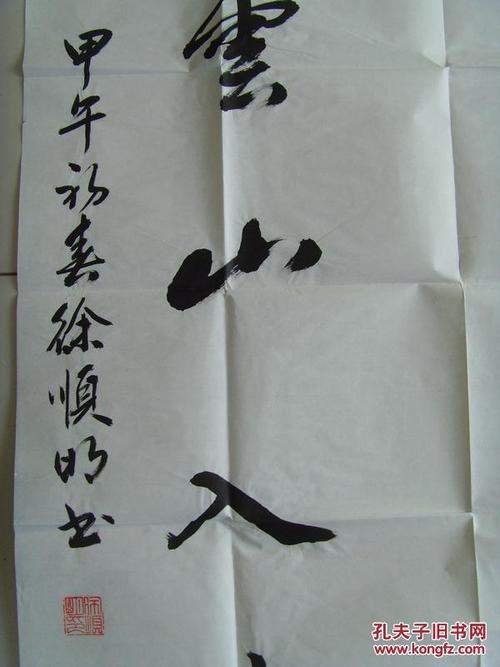 雲山入
甲午初春徐順明书
孔夫子旧书网
www.kongfz.com